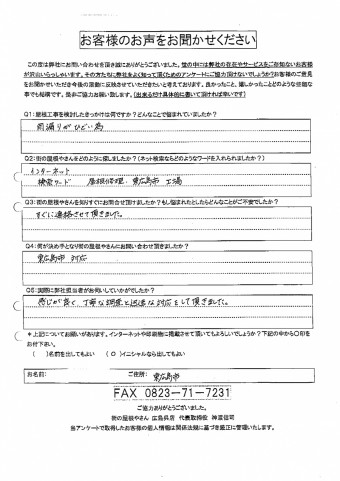 お客様のお声をお聞かせください
この度は弊社にお問い合わせを頂き誠にありがとうございました。世の中には弊社の存在やサービスをご存知ないお客様
が沢山いらっしゃいます。その方たちに弊社をよく知って頂くためのアンケートにご協力頂けないでしょうか？お客様のご意見
をお聞かせいただき今後の活動に反映させていただきたいと考えております。良かったこと、嬉しかったことどのような些細な
事でも結構です。是非ご協力お願い致します。(出来るだけ具体的に書いて頂ければ幸いです)
Q1:屋根工事を検討したきっかけは何ですか？どんなことで悩まれていましたか？
雨漏りがひどい為
Q2:街の屋根やさんをどのように探しましたか？(ネット検索ならどのようなワードを入れられましたか？)
インターネット
検索ワード 屋根修理、東広島市 工場
Q3:街の屋根やさんを知りすぐにお問合せ頂けましたか？もし悩まれたとしたらどんなことがご不安でしたか？
すぐに連絡させて頂きました。
Q4:何が決め手となり街の屋根やさんにお問い合わせ頂きましたか？
東広島市 対応
Q5:実際に弊社担当者がお伺いしていかがでしたか？
感じが良く、丁寧な調査と迅速な対応をして頂きました。
＊上記についてお願いがあります。インターネットや印刷物に掲載させて頂いてもよろしいでしょうか？下記の中から〇印を
お付下さい。
( )名前を出してもよい (〇)イニシャルなら出してもよい
お名前: ご住所: 東広島市
FAX 0823-71-7231
ご協力ありがとうございました。
街の屋根やさん 広島呉店 代表取締役
当アンケートで取得したお客様の個人情報は関係法規に基づき厳正に管理いたします。